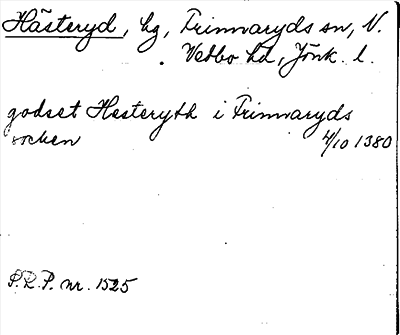 Hästeryd, hg, Frinnaryds sn, N.
Vedbo hd, Jönk. l.
godset Hesteryth i Frinnaryds
socken 4/10 1380
S.R.P. nr. 1525